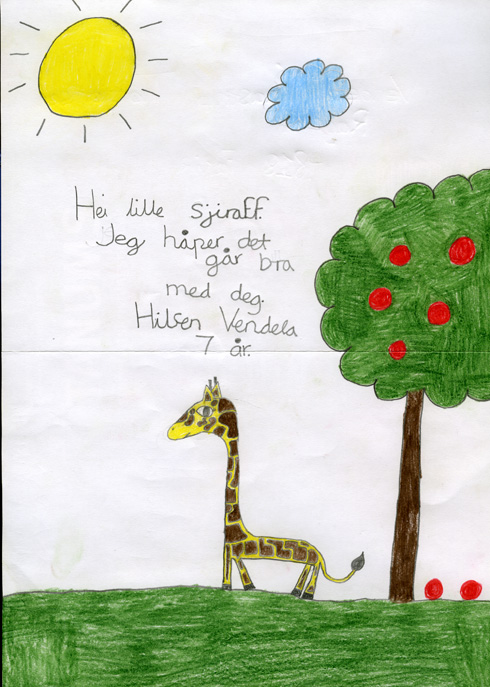 Hei lille sjiraff.
Jeg håper det
går bra
med deg.
Hilsen Vendela
7 år.